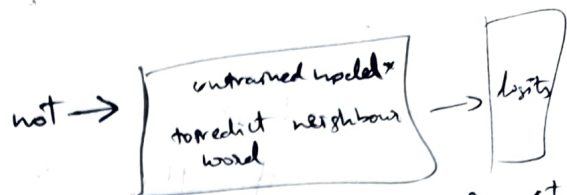 not →
untrained model*
to predict neighbour
word
→ logits